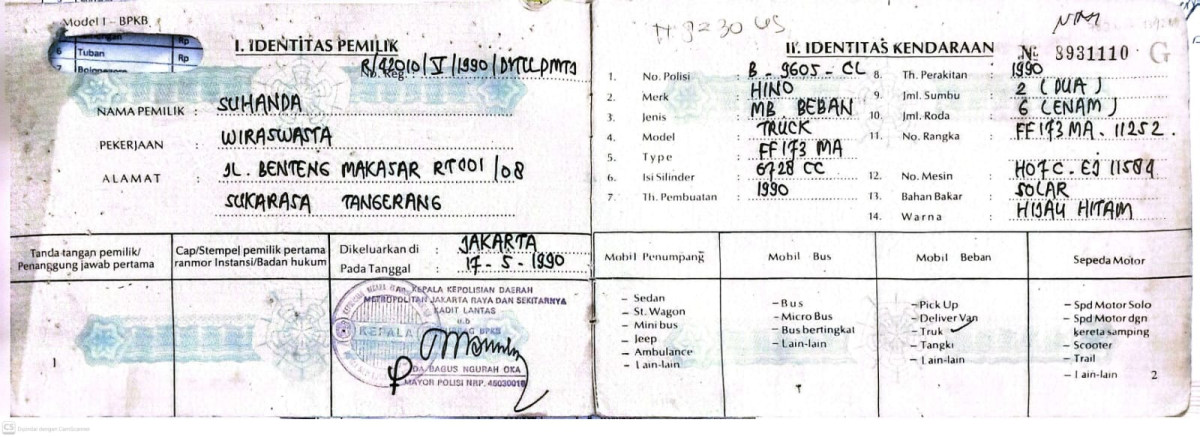 Model I – BPKB
6 Tuban Rp
7 Rp
I. IDENTITAS PEMILIK
No. Reg.
NAMA PEMILIK : SUHANDA
PEKERJAAN : WIRASWASTA
ALAMAT : JL. BENTENG MAKASAR RT001/08
SUKARASA TANGERANG
Tanda tangan pemilik/
Penanggung jawab pertama
Cap/Stempel pemilik pertama
ranmor Instansi/Badan hukum
Dikeluarkan di : JAKARTA
Pada Tanggal : 17-5-1990
An. KEPALA KEPOLISIAN DAERAH
METROPOLITAN JAKARTA RAYA DAN SEKITARNYA
KADIT LANTAS
u.b
KEPALA BPKB
BAGUS NGURAH OKA
MAYOR POLISI NRP.
1
II. IDENTITAS KENDARAAN
No. 8931110 G
1. No. Polisi : B - 9605 - CL
2. Merk : HINO
3. Jenis : MB. BEBAN
4. Model : TRUCK
5. Type : FF173 MA
6. Isi Silinder : 6728 CC
7. Th. Pembuatan : 1990
8. Th. Perakitan : 1990
9. Jml. Sumbu : 2 (DUA)
10. Jml. Roda : 6 (ENAM)
11. No. Rangka : FF173 MA. 11252.
12. No. Mesin : H07C. EJ 11584
13. Bahan Bakar : SOLAR
14. Warna : HIJAU HITAM
Mobil Penumpang
– Sedan
– St. Wagon
– Mini bus
– Jeep
– Ambulance
– Lain-lain
Mobil Bus
– Bus
– Micro Bus
– Bus bertingkat
– Lain-lain
Mobil Beban
– Pick Up
– Deliver Van
– Truk
– Tangki
– Lain-lain
Sepeda Motor
– Spd Motor Solo
– Spd Motor dgn
kereta samping
– Scooter
– Trail
– Lain-lain
2
CS Dipindai dengan CamScanner